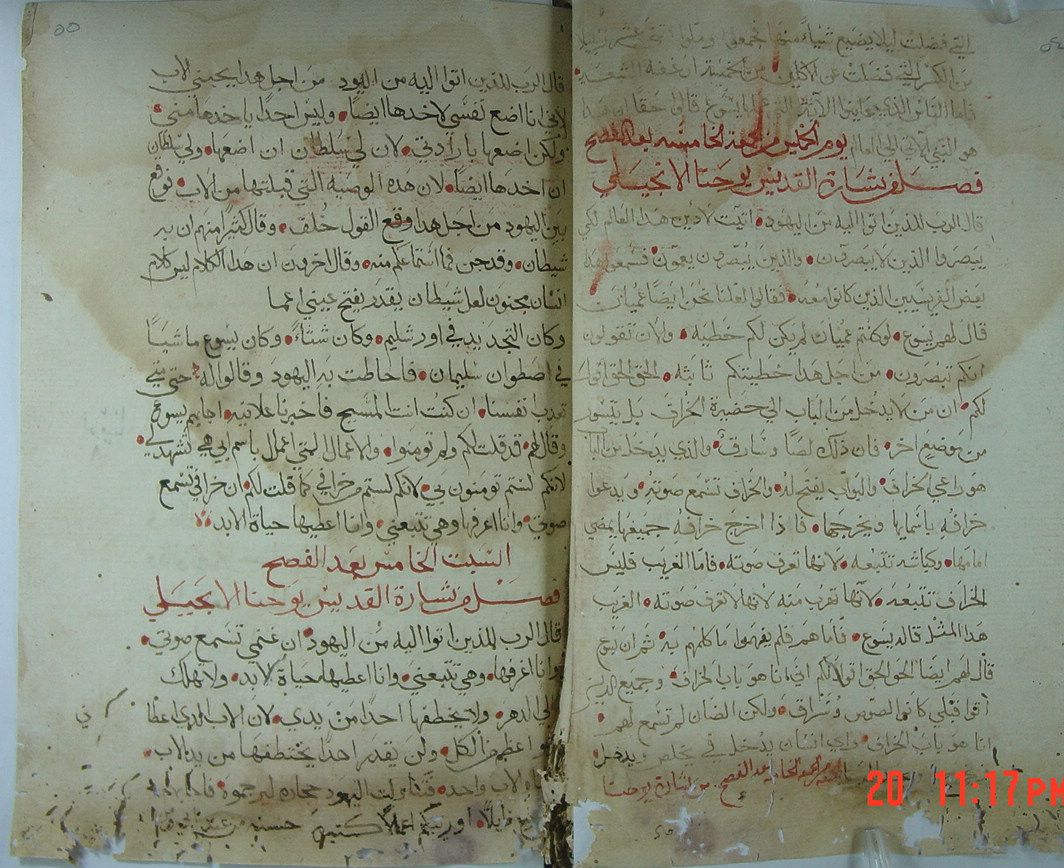 التي فضلت ليلا يضيع شياء منها فجمعوا وملوا اثنتي عشر زنبيلا
من الكسر التي فضلت عن الاكلين من الخمسة ارغفة الشعير
فاما الناس الذين عاينوا الآية التي عملها يسوع قالوا حقا ان هذا
هو النبي الاتي الى العالم
يوم الخميس من الجمعة الخامسه بعد الفصح
فصل من بشارة القديس يوحنا الانجيلي
قال الرب للذين اتوا اليه من اليهود اتيت لادين هذا العالم لكي
يبصروا الذين لا يبصرون والذين يبصرون يعمون فسمعوا هذا
بعض الفريسيين الذين كانوا معه فقالوا لعلنا نحن ايضا عميان
قال لهم يسوع لو كنتم عميان لم يكن لكم خطيه والان تقولون
انكم تبصرون من اجل هذا خطيتكم ثابته الحق الحق اقول
لكم ان من لا يدخل من الباب الى حضيرة الخراف بل يتسور
من موضع اخر فان ذلك لصا وسارق والذي يدخل من الباب
هو راعي الخراف والبواب يفتح له والخراف تسمع صوته ويدعوا
خرافه باسمايها ويخرجها فاذا اخرج خرافه جميعها يمضي
امامها وكباشه تتبعه لانها تعرف صوته فاما الغريب فليس
الخراف تتبعه لانها تهرب منه لانها لا تعرف صوته الغريب
هذا المثل قاله يسوع فاما هم فلم يفهموا ما كلمهم به ثم ان يسوع
قال لهم ايضا الحق الحق اقول لكم اني انا هو باب الخراف وجميع الذين
اتوا قبلي كانوا لصوص وسراق ولكن الضان لم تسمع لهم
انا هو باب الخراف وايما انسان يدخل في يخلص ويدخل
الجمعه الخامسه بعد الفصح من بشارة يوحنا
20 11:17PM
٥٥
قال الرب للذين اتوا اليه من اليهود من اجل هذا يحبني الاب
لاني انا اضع نفسي لاخدها ايضا وليس احدا ياخدها مني
ولكن اضعها بارادتي لان لي سلطان ان اضعها ولي سلطان
ان اخدها ايضا لان هذه الوصيه التي قبلتها من الاب فوقع
بين اليهود من اجل هذا وقع القول خلف وقال كثيرا منهم ان به
شيطان وقد جن فما استماعكم منه وقال اخرون ان هذا الكلام ليس كلام
انسان مجنون لعل شيطان يقدر يفتح عيني اعما
وكان التجديد في اورشليم وكان شتاء وكان يسوع ماشيا
في اصطوان سليمان فاحاطت به اليهود وقالوا له حتى متي
تعذب نفسنا ان كنت انت المسيح فاخبرنا علانيه اجابهم يسوع
وقال لهم قد قلت لكم ولم تومنوا والاعمال التي اعمل باسم ابي هي تشهد لي
لانكم لستم تومنون بي لانكم لستم من خرافي كما قلت لكم ان خرافي تسمع
صوتي وانا اعرفها وهي تتبعني وانا اعطيها حياة الابد
السبت الخامس بعد الفصح
فصل من بشارة القديس يوحنا الانجيلي
قال الرب للذين اتوا اليه من اليهود ان غنمي تسمع صوتي
وانا اعرفها وهي تتبعني وانا اعطيها حياة الابد ولا تهلك
الي الدهر ولا يخطفها احدا من يدي لان الاب الذي اعطا
اعظم من الكل ولن يقدر احدا يختطفها من يد الاب
والاب واحد فتناولت اليهود حجاره ليرجموه
قايلا اوريتكم اعمالا كثيره حسنه من عند